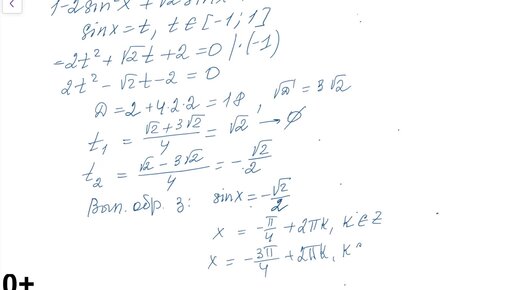 1-2sin²x+√2sinx
sinx=t, t∈[-1;1]
-2t²+√2t+2=0 |·(-1)
2t²-√2t-2=0
D=2+4·2·2=18, √D=3√2
t₁ = (√2+3√2)/4 = √2 → ∅
t₂ = (√2-3√2)/4 = -√2/2
Вып. обр. з: sinx=-√2/2
x = -π/4 + 2πk, k∈Z
x = -3π/4 + 2πk, k
0+